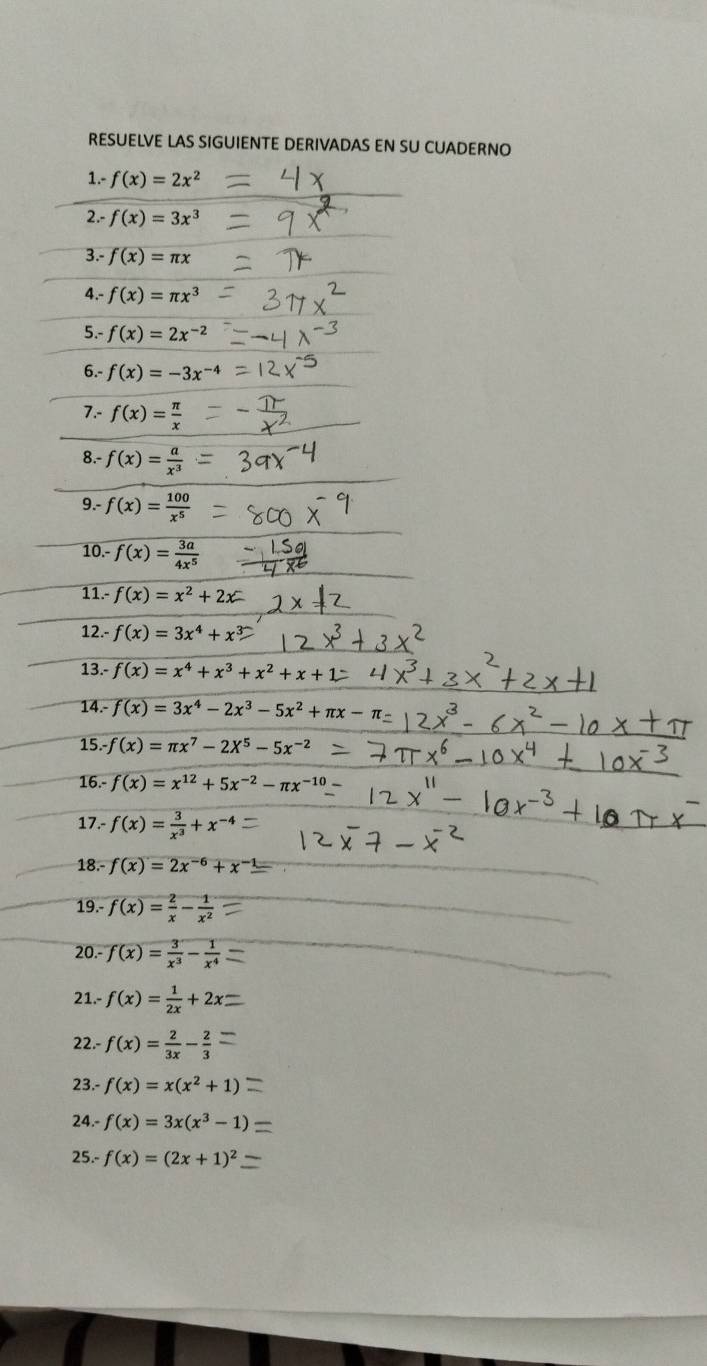 RESUELVE LAS SIGUIENTE DERIVADAS EN SU CUADERNO
1.- f(x) = 2x² = 4x
2.- f(x) = 3x³ = 9x²
3.- f(x) = πx = π
4.- f(x) = πx³ = 3πx²
5.- f(x) = 2x⁻² = -4x⁻³
6.- f(x) = -3x⁻⁴ = 12x⁻⁵
7.- f(x) = π/x = - π/x²
8.- f(x) = a/x³ = 3ax⁻⁴
9.- f(x) = 100/x⁵ = 800x⁻⁹
10.- f(x) = 3a/4x⁵ = -15a/4x⁶
11.- f(x) = x² + 2x = 2x+2
12.- f(x) = 3x⁴ + x³ = 12x³ + 3x²
13.- f(x) = x⁴ + x³ + x² + x + 1 = 4x³ + 3x² + 2x + 1
14.- f(x) = 3x⁴ − 2x³ − 5x² + πx − π = 12x³ - 6x² - 10x + π
15.-f(x) = πx⁷ − 2X⁵ − 5x⁻² = 7πx⁶ - 10x⁴ + 10x⁻³
16.- f(x) = x¹² + 5x⁻² − πx⁻¹⁰ = 12x¹¹ - 10x⁻³ + 10πx⁻
17.- f(x) = 3/x³ + x⁻⁴ =
12x⁻7 - x⁻²
18.- f(x) = 2x⁻⁶ + x⁻¹ =
19.- f(x) = 2/x − 1/x² =
20.- f(x) = 3/x³ − 1/x⁴ =
21.- f(x) = 1/2x + 2x =
22.- f(x) = 2/3x − 2/3 =
23.- f(x) = x(x² + 1) =
24.- f(x) = 3x(x³ − 1) =
25.- f(x) = (2x + 1)² =